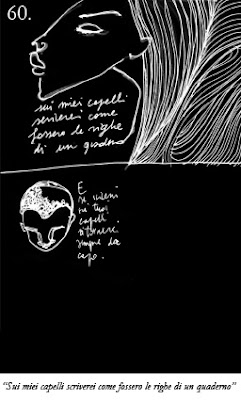 60.
sui miei capelli
scriverei come
fossero le righe
di un quaderno
E
tuoi
capelli
sempre da
capo.
"Sui miei capelli scriverei come fossero le righe di un quaderno"